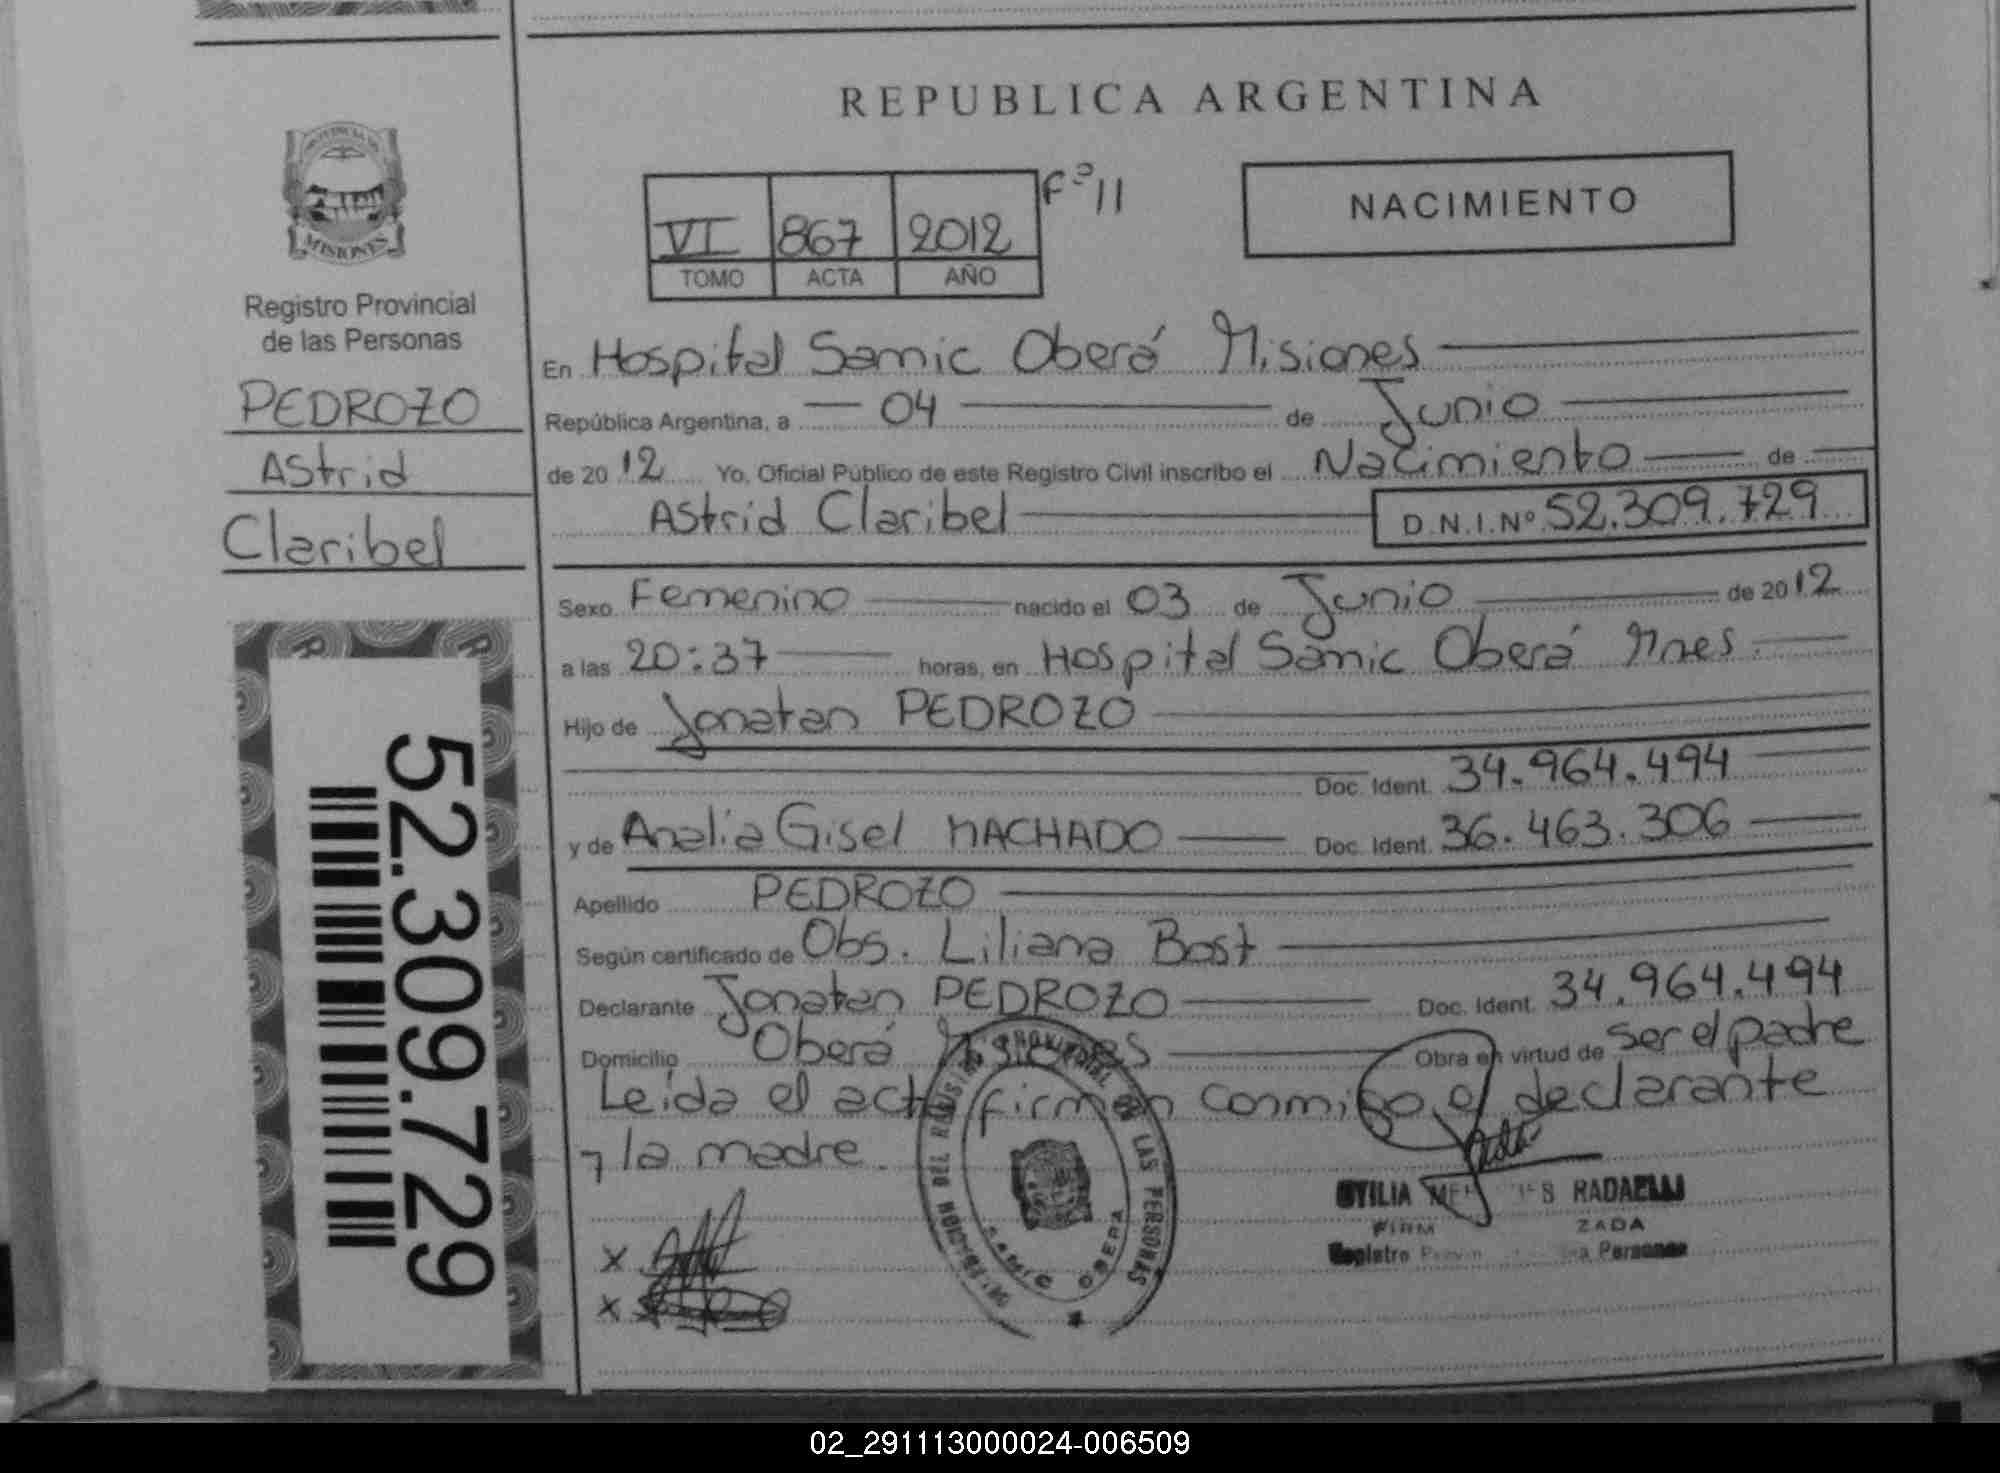 REPUBLICA ARGENTINA
PROVINCIA DE
MISIONES
Registro Provincial
de las Personas
PEDROZO
Astrid
Claribel
52.309.729
VI 867 2012 Fº 11
TOMO ACTA AÑO
NACIMIENTO
En Hospital Samic Oberá Misiones
República Argentina, a 04 de Junio
de 2012 Yo, Oficial Público de este Registro Civil inscribo el Nacimiento de
Astrid Claribel D.N.I.Nº 52.309.729
Sexo Femenino nacido el 03 de Junio de 2012
a las 20:37 horas, en Hospital Samic Oberá Mnes.
Hijo de Jonatan PEDROZO
Doc. Ident. 34.964.494
y de Analia Gisel MACHADO Doc. Ident. 36.463.306
Apellido PEDROZO
Según certificado de Obs. Liliana Bost
Declarante Jonatan PEDROZO Doc. Ident. 34.964.494
Domicilio Oberá Misiones Obra en virtud de ser el padre
Leída el acta firman conmigo el declarante
y la madre.
DEL REGISTRO PROVINCIAL DE LAS PERSONAS
SAMIC OBERA
RADAELLI
Registro
Personas
x
x
02_291113000024-006509